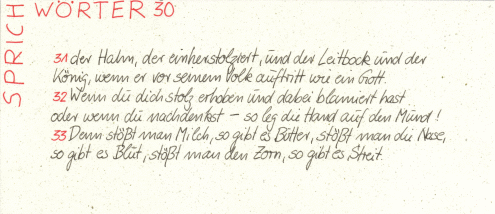 SPRICHWÖRTER 30
31 der Hahn, der einherstolziert, und der Leitbock und der
König, wenn er vor seinem Volk auftritt wie ein Gott.
32 Wenn du dich stolz erhoben und dabei blamiert hast
oder wenn du nachdenkst – so leg die Hand auf den Mund!
33 Denn stößt man Milch, so gibt es Butter, stößt man die Nase,
so gibt es Blut, stößt man den Zorn, so gibt es Streit.